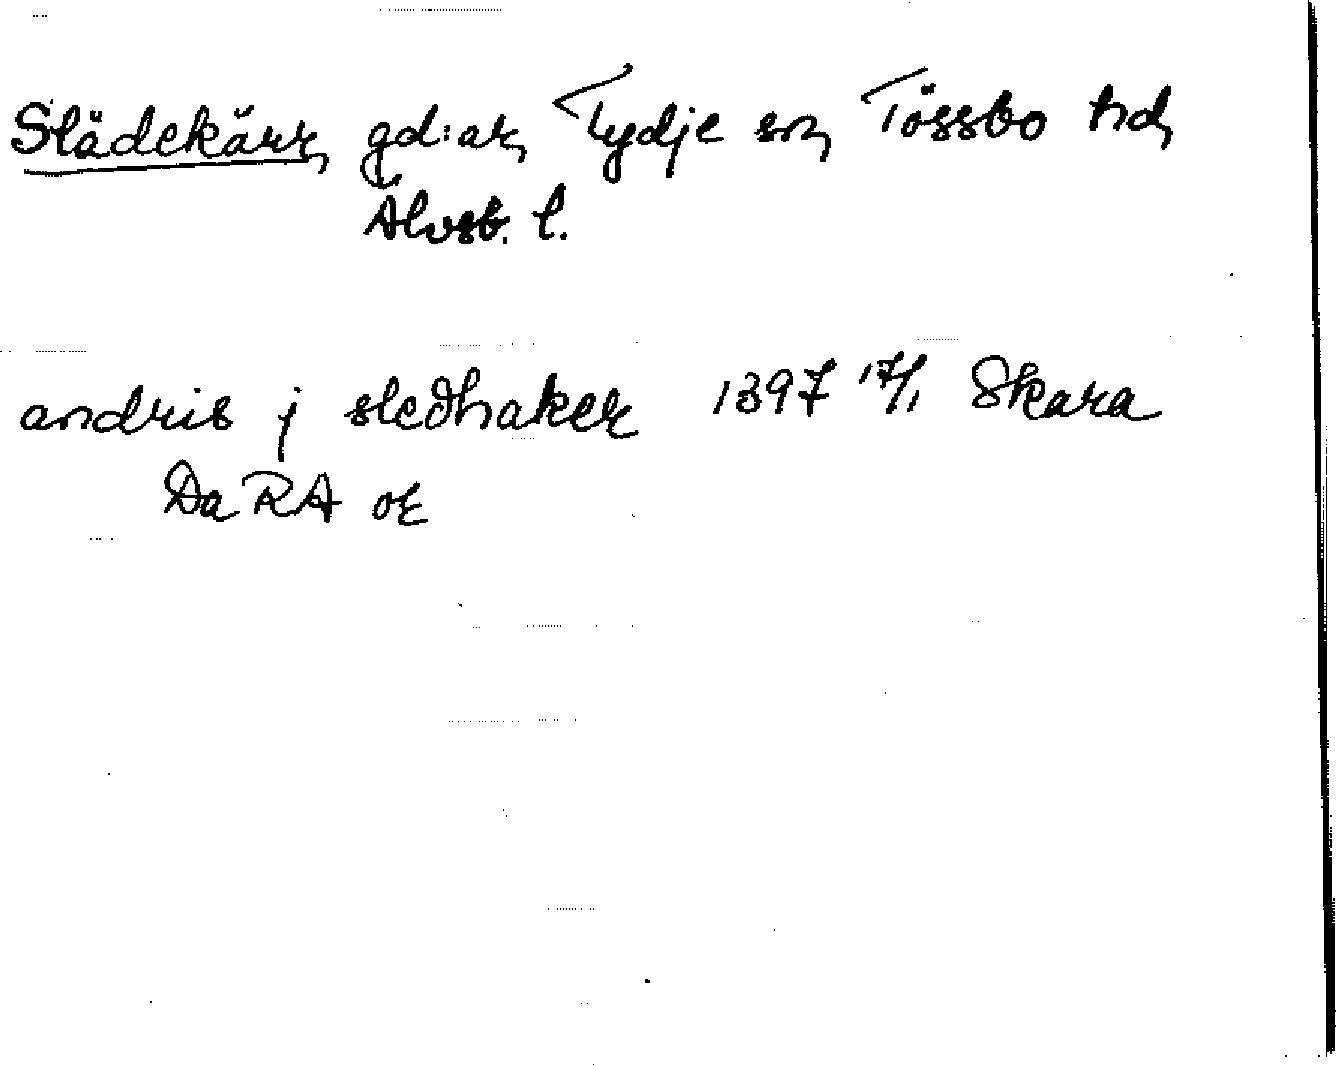 Slädekärr, gd:ar, Tydje sn, Tössbo hd,
Älvsb. l.
andris j sledhaker 1397 17/1 Skara
Da RA or